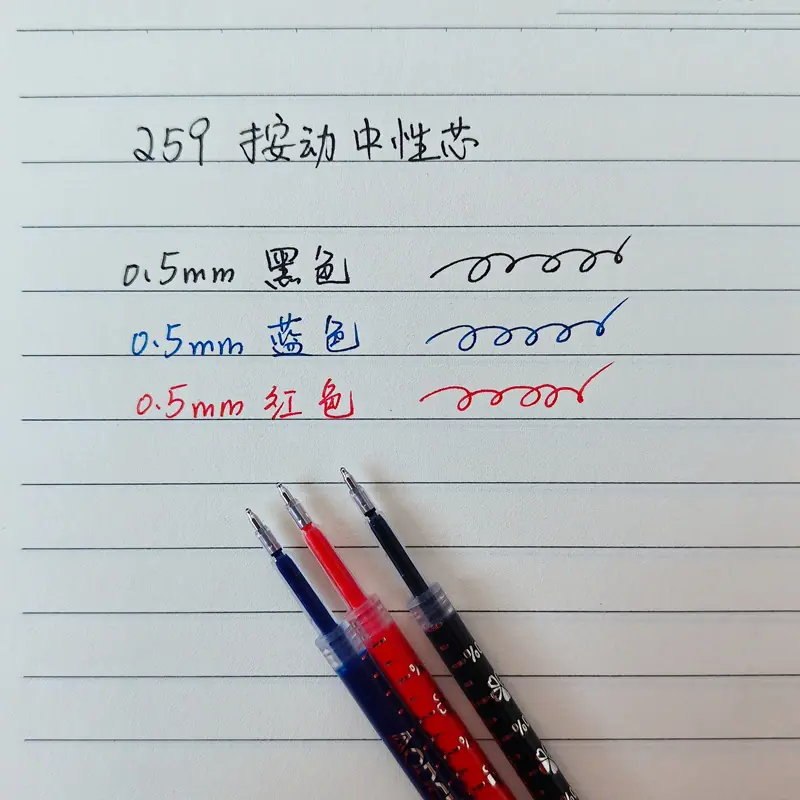 259 按动中性芯
0.5mm 黑色
0.5mm 蓝色
0.5mm 红色